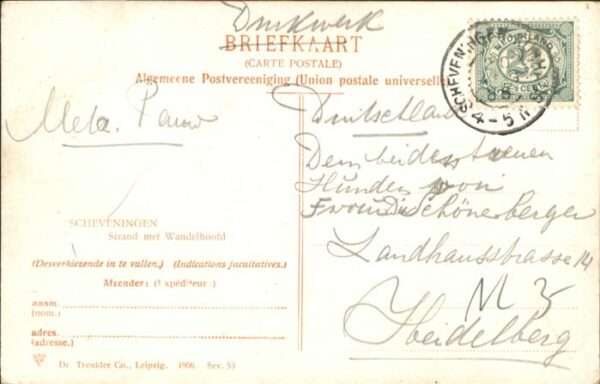 Drukwerk
BRIEFKAART
(CARTE POSTALE)
Algemeene Postvereeniging (Union postale universelle)
NEDERLAND
SCHEVENINGEN
4-5 N
Meta Pauw
Duitschland
Dem beiden treuen
Hunden von
Frau Dr Schönerberger
Landhausstrasse 14
M 3
Heidelberg
SCHEVENINGEN
Strand met Wandelhoofd
(Desverkiezende in te vullen.) (Indications facultatives.)
Afzender: (Expéditeur:)
naam:
(nom:)
adres:
(adresse:)
Dr. Trenkler Co., Leipzig. 1906. Sev. 53